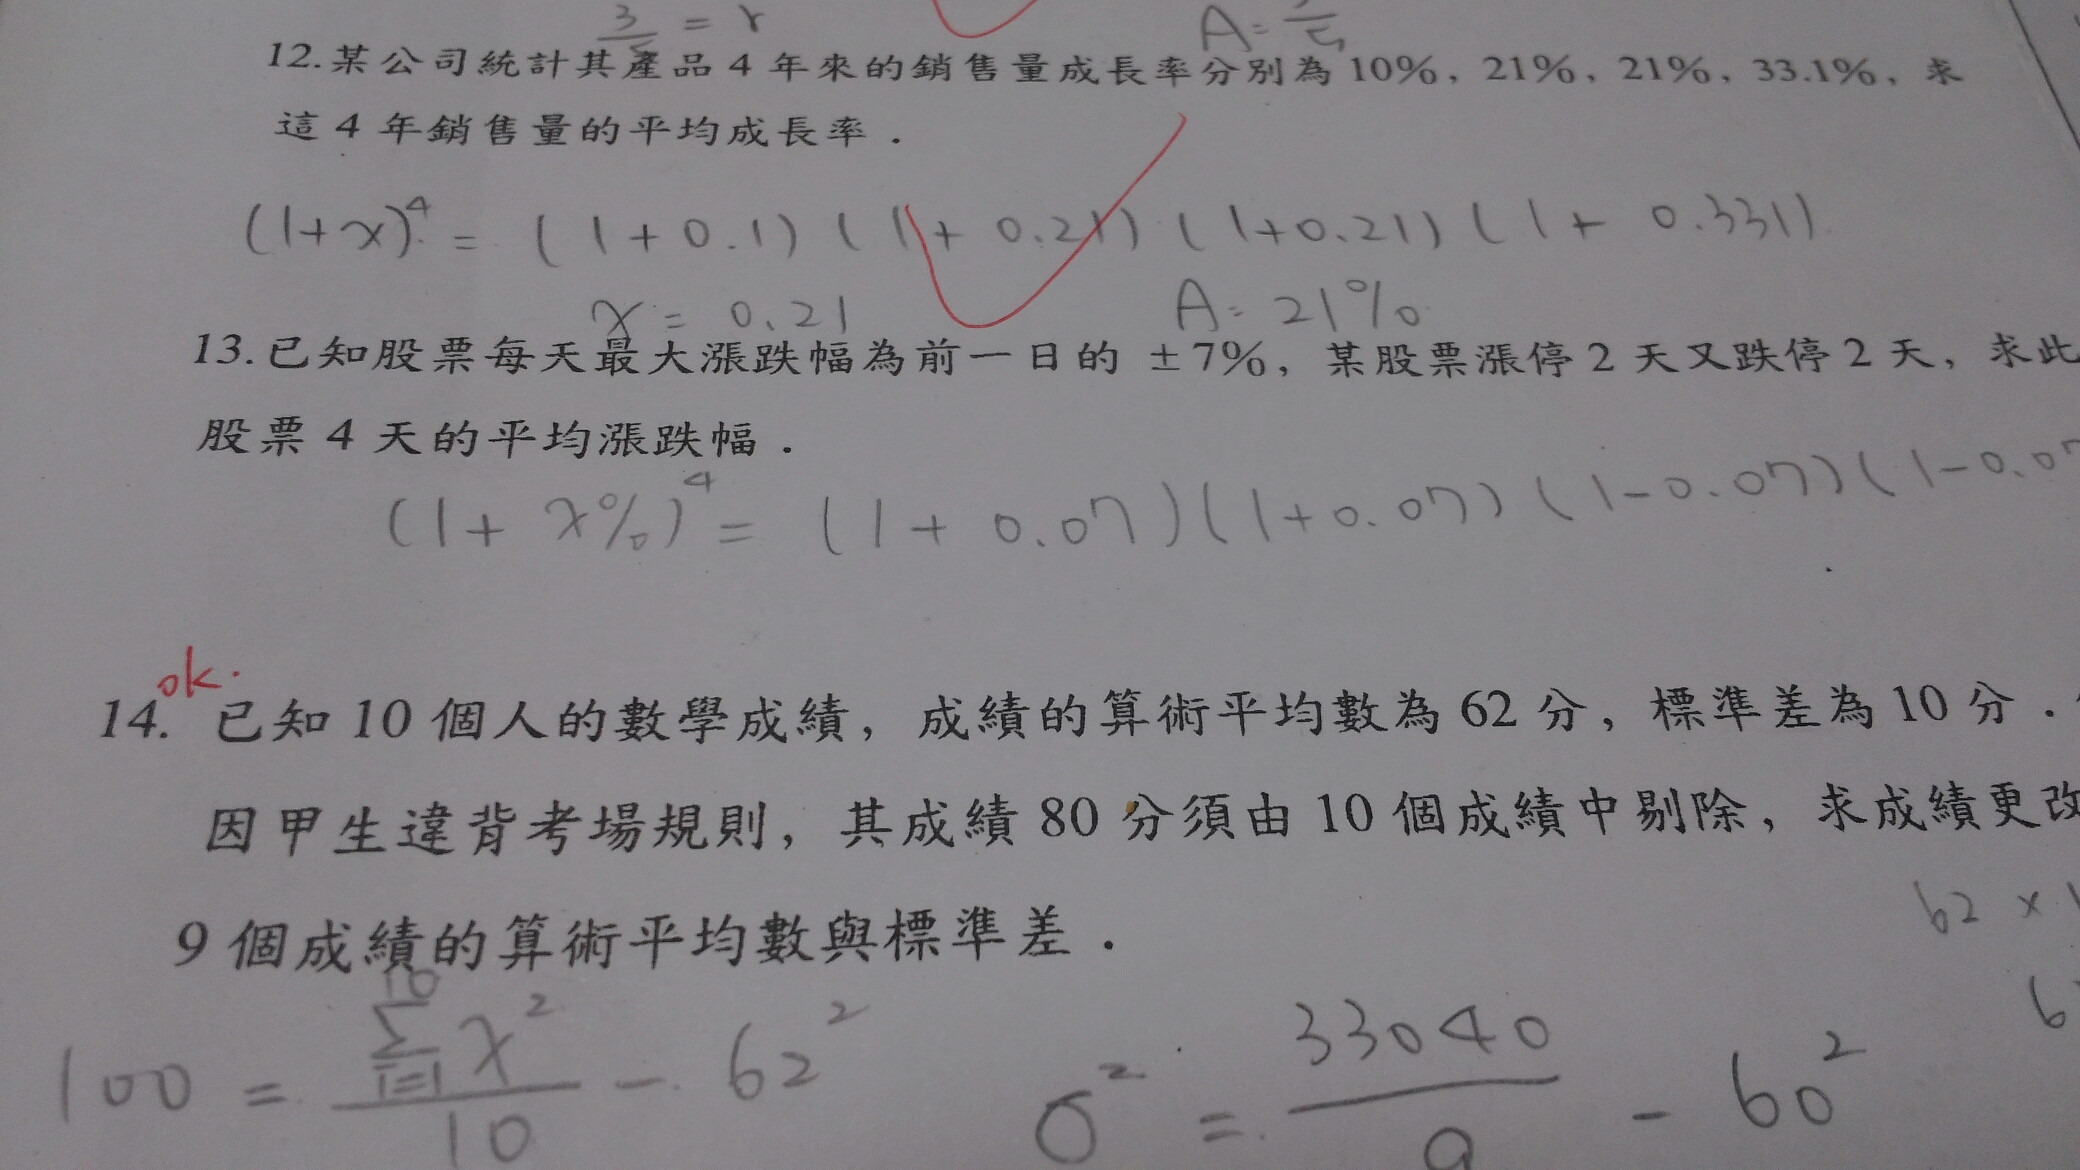 3/5 = r
A=
12.某公司統計其產品4年來的銷售量成長率分別為10%，21%，21%，33.1%，求
這4年銷售量的平均成長率．
(1+x)⁴ = (1+0.1)(1+0.21)(1+0.21)(1+0.331)
x = 0.21 A=21%
13.已知股票每天最大漲跌幅為前一日的 ±7%，某股票漲停2天又跌停2天，求此
股票4天的平均漲跌幅．
(1+x%)⁴ = (1+0.07)(1+0.07)(1-0.07)(1-0.07
ok.
14. 已知10個人的數學成績，成績的算術平均數為62分，標準差為10分．
因甲生違背考場規則，其成績80分須由10個成績中剔除，求成績更改
9個成績的算術平均數與標準差．
62 x
6
100 = \frac{\sum_{i=1}^{10} x²}{10} - 62² σ² = \frac{33040}{9} - 60²